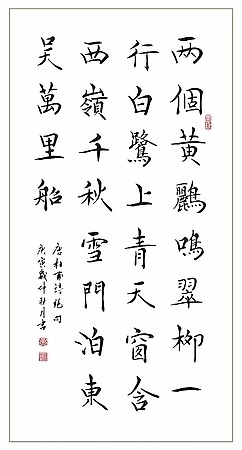 两個黃鸝鳴翠柳一
行白鷺上青天窗含
西嶺千秋雪門泊東
吳萬里船
唐杜甫詩絕句
庚寅歲仲月書